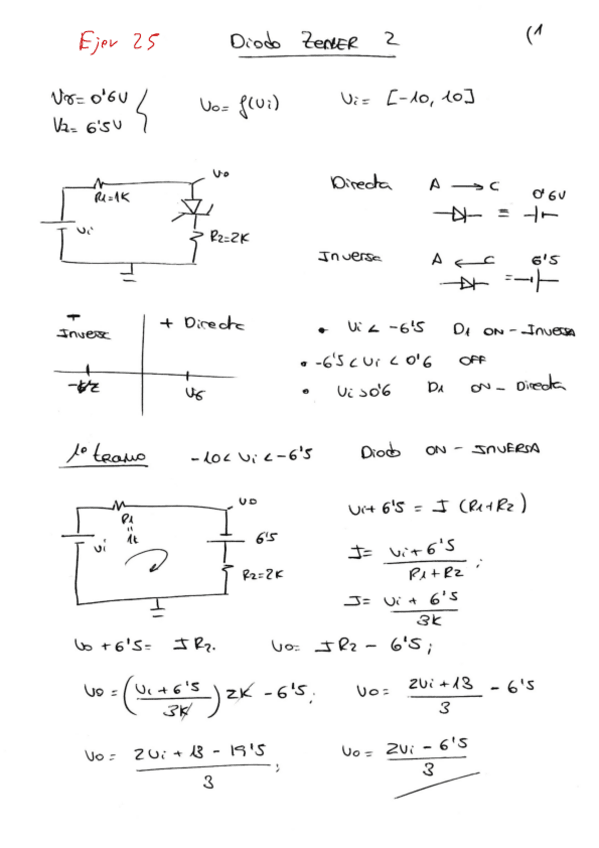 Ejer 25 Diodo ZENER 2 (1
Vγ= 0'6V
Vz= 6'5V
Vo= f(Vi) Vi= [-10, 10]
Vo
R1=1K
Vi
R2=2K
Directa A → C 0'6V
=
Inversa A ← C 6'5
=
- Inversa + Directa
-Vz Vγ
• Vi < -6'5 D1 ON - Inversa
• -6'5 < Vi < 0'6 OFF
• Vi >0'6 D1 ON - Directa
1º tramo -10 < Vi < -6'5 Diodo ON - INVERSA
Vo
R1
=
1k
Vi
6'5
R2=2K
Vi + 6'5 = I (R1+R2)
I= (Vi + 6'5) / (R1 + R2) ;
I= (Vi + 6'5) / 3K
Vo + 6'5 = I R2. Vo= I R2 - 6'5 ;
Vo = ((Vi + 6'5) / 3K) 2K - 6'5 ; Vo= (2Vi + 13) / 3 - 6'5
Vo= (2Vi + 13 - 19'5) / 3 ; Vo= (2Vi - 6'5) / 3